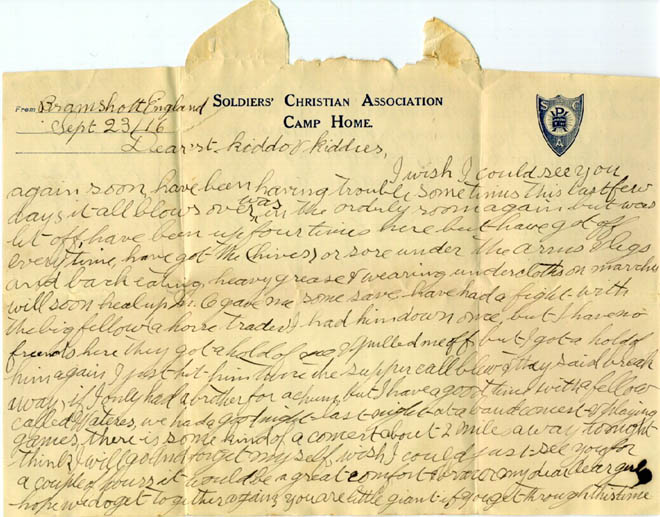 From Bramshott England SOLDIERS' CHRISTIAN ASSOCIATION
CAMP HOME.
Sept 23/16
S C A
Dearst kiddo & kiddies,
I wish I could see you
again soon, have been having trouble sometimes this last few
days it all blows over, was in the orderly room again but was
let off, have been up four times here but have got off
every time, have got the (hives) or sore under the arms & legs
and back eating heavy grease & wearing undercloths on marches
will soon heal up gave me some save have had a fight with
the big fellow (a horse trader) I had him down once, but I have no
friends here they got a hold of me & pulled me off but I got a hold of
him again I just hit him the supper call blew & they said break
away, if I only had a brother for a chum, but I have a good time with a fellow
called Wateres, we had a good night last night at a band consert & playing
games, there is some kind of a consert about 2 mile away tonight
think I will go and forget myself, wish I could just see you for
a couple of hours it would be a great comfort my dear dear girl
hope we do get to gether again, you are little giant if you get through this time